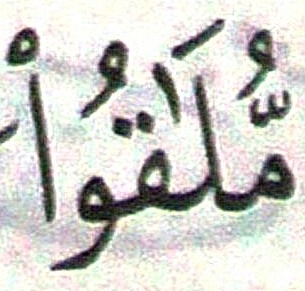 مُّلَٰقُوا۟